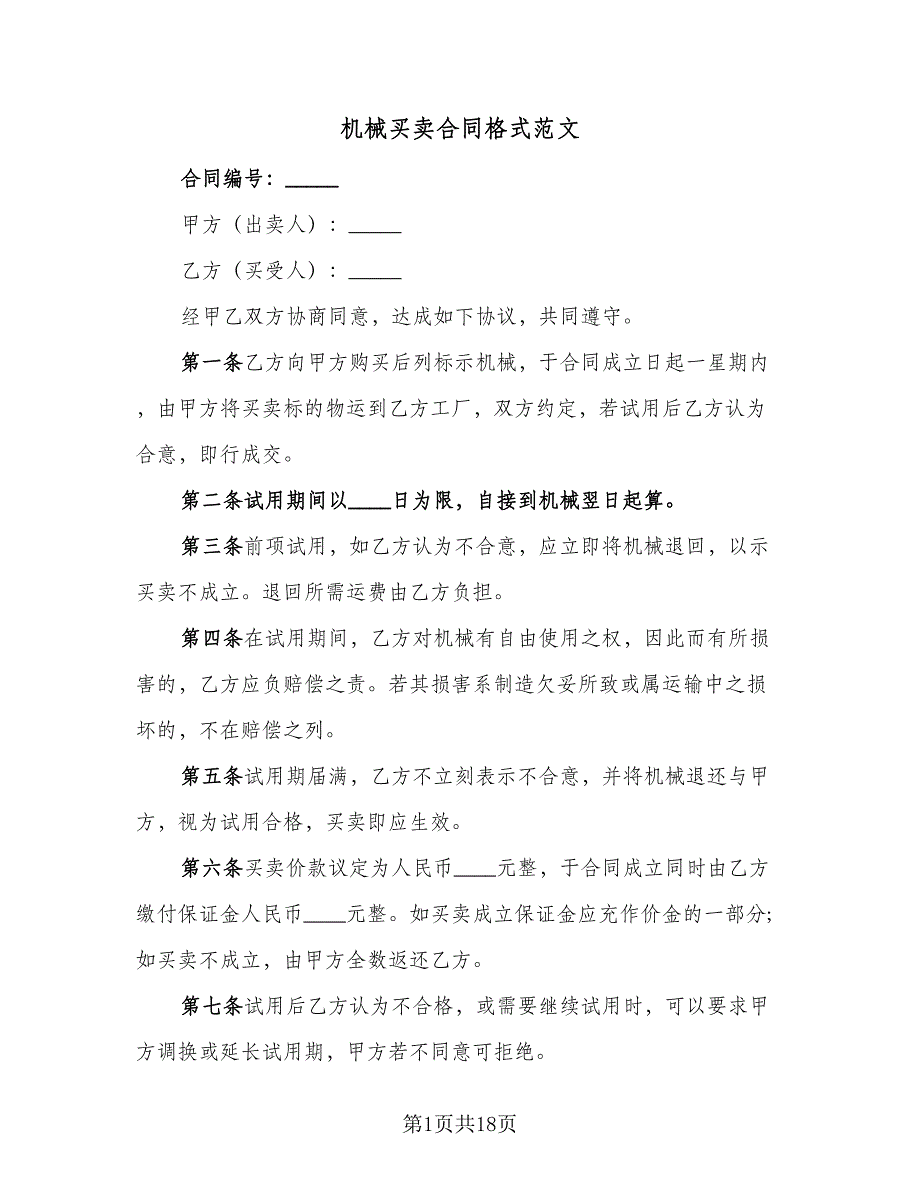 机械买卖合同格式范文
合同编号：_____
甲方（出卖人）：_____
乙方（买受人）：_____
经甲乙双方协商同意，达成如下协议，共同遵守。
第一条乙方向甲方购买后列标示机械，于合同成立日起一星期内
，由甲方将买卖标的物运到乙方工厂，双方约定，若试用后乙方认为
合意，即行成交。
第二条试用期间以____日为限，自接到机械翌日起算。
第三条前项试用，如乙方认为不合意，应立即将机械退回，以示
买卖不成立。退回所需运费由乙方负担。
第四条在试用期间，乙方对机械有自由使用之权，因此而有所损
害的，乙方应负赔偿之责。若其损害系制造欠妥所致或属运输中之损
坏的，不在赔偿之列。
第五条试用期届满，乙方不立刻表示不合意，并将机械退还与甲
方，视为试用合格，买卖即应生效。
第六条买卖价款议定为人民币____元整，于合同成立同时由乙方
缴付保证金人民币____元整。如买卖成立保证金应充作价金的一部分;
如买卖不成立，由甲方全数返还乙方。
第七条试用后乙方认为不合格，或需要继续试用时，可以要求甲
方调换或延长试用期，甲方若不同意可拒绝。
第1页共18页